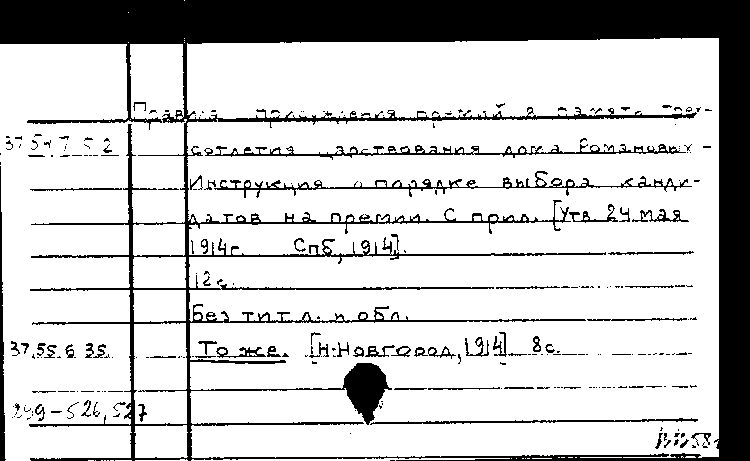 Правила присуждения премий в память трех-
37.54.7.52 сотлетия царствования дома Романовых –
Инструкция о порядке выбора канди-
датов на премии. С прил. [Утв. 24 мая
1914г. Спб, 1914].
12с.
Без тит. л. и обл.
37.55.6.35. То же. [Н.-Новгород, 1914]. 8с.
299–526, 527